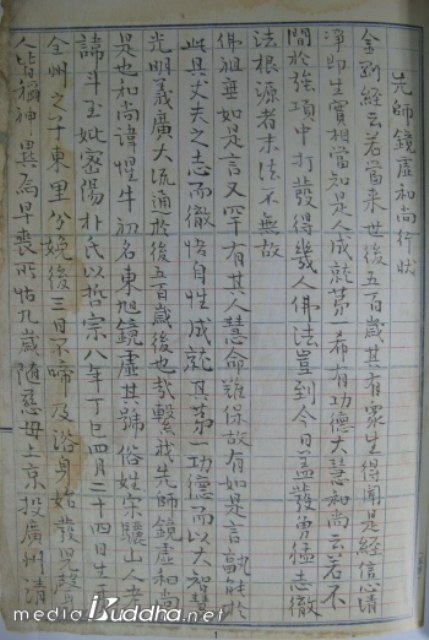 先師鏡虛和尚行狀
金剛經云若當來世後五百歲其有衆生得聞是經信心清
淨即生實相當知是人成就第一希有功德大慧和尚云若不
間於強項中打發得幾人佛法豈到今日盖發勇猛志徹
法根源者末法不無故
佛祖垂如是言又罕有其人慧命難保故有如是言孰能於
此具丈夫之志而徹悟自性成就其第一功德而以大智慧
光明義廣大流通於後五百歲後也哉繄我先師鏡虛和尚
是也和尚諱惺牛初名東旭鏡虛其號俗姓宋驪山人考
諱斗玉妣密陽朴氏以哲宗八年丁巳四月二十四日生于
全州之子東里分娩後三日不啼及浴身始發兒聲
人皆稱神異焉早喪所怙九歲隨慈母上京投廣州清
1
mediaBuddha.net